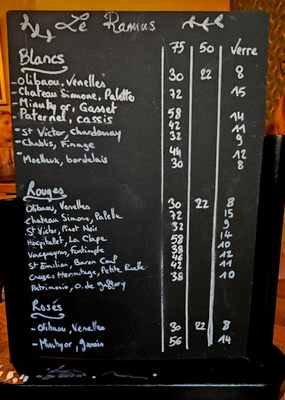 Le Ramus
75 50 Verre
Blancs
- Olibaou, Venelles 30 22 8
- Chateau Simone, Palette 72 15
- Minuty or, Gasset 58 14
Paternel, cassis 42 11
- St Victor, Chardonnay 32 9
- Chablis, Finage 44 12
- Moelleux, bordelais 30 8
Rouges
Olibaou, Venelles 30 22 8
Chateau Simone, Palette 72 15
St Victor, Pinot Noir 32 9
Hospitalet, La Clape 58 14
Vacqueyras, 38 10
St Emilion, Baron 46 12
Crozes Hermitage, Petite Ruche 42 11
Patrimonio, O. de 38 10
Rosés
- Olibaou, Venelles 30 22 8
- Minuty or, 56 14